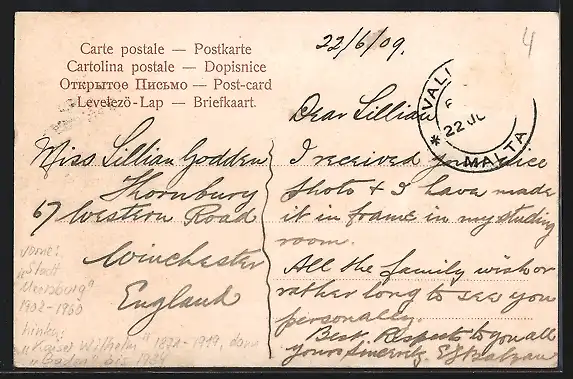 Carte postale — Postkarte
Cartolina postale — Dopisnice
Открытое Письмо — Post-card
Levelezö-Lap — Briefkaart.
22/6/09.
4
VAL
22 JU
MALTA
Dear Lillian
I received your nice
photo & I have made
it in frame in my studing
room.
All the family wish or
rather long to see you
personally.
Best Respects to you all
yours sincerely
Miss Lillian Godden
Thornbury
67 Western Road
Winchester
England
vorne:
"Stadt
Meersburg"
1902-1960
hinten:
"Kaiser Wilhelm" 1871-1919, dann
"Baden" bis 1934